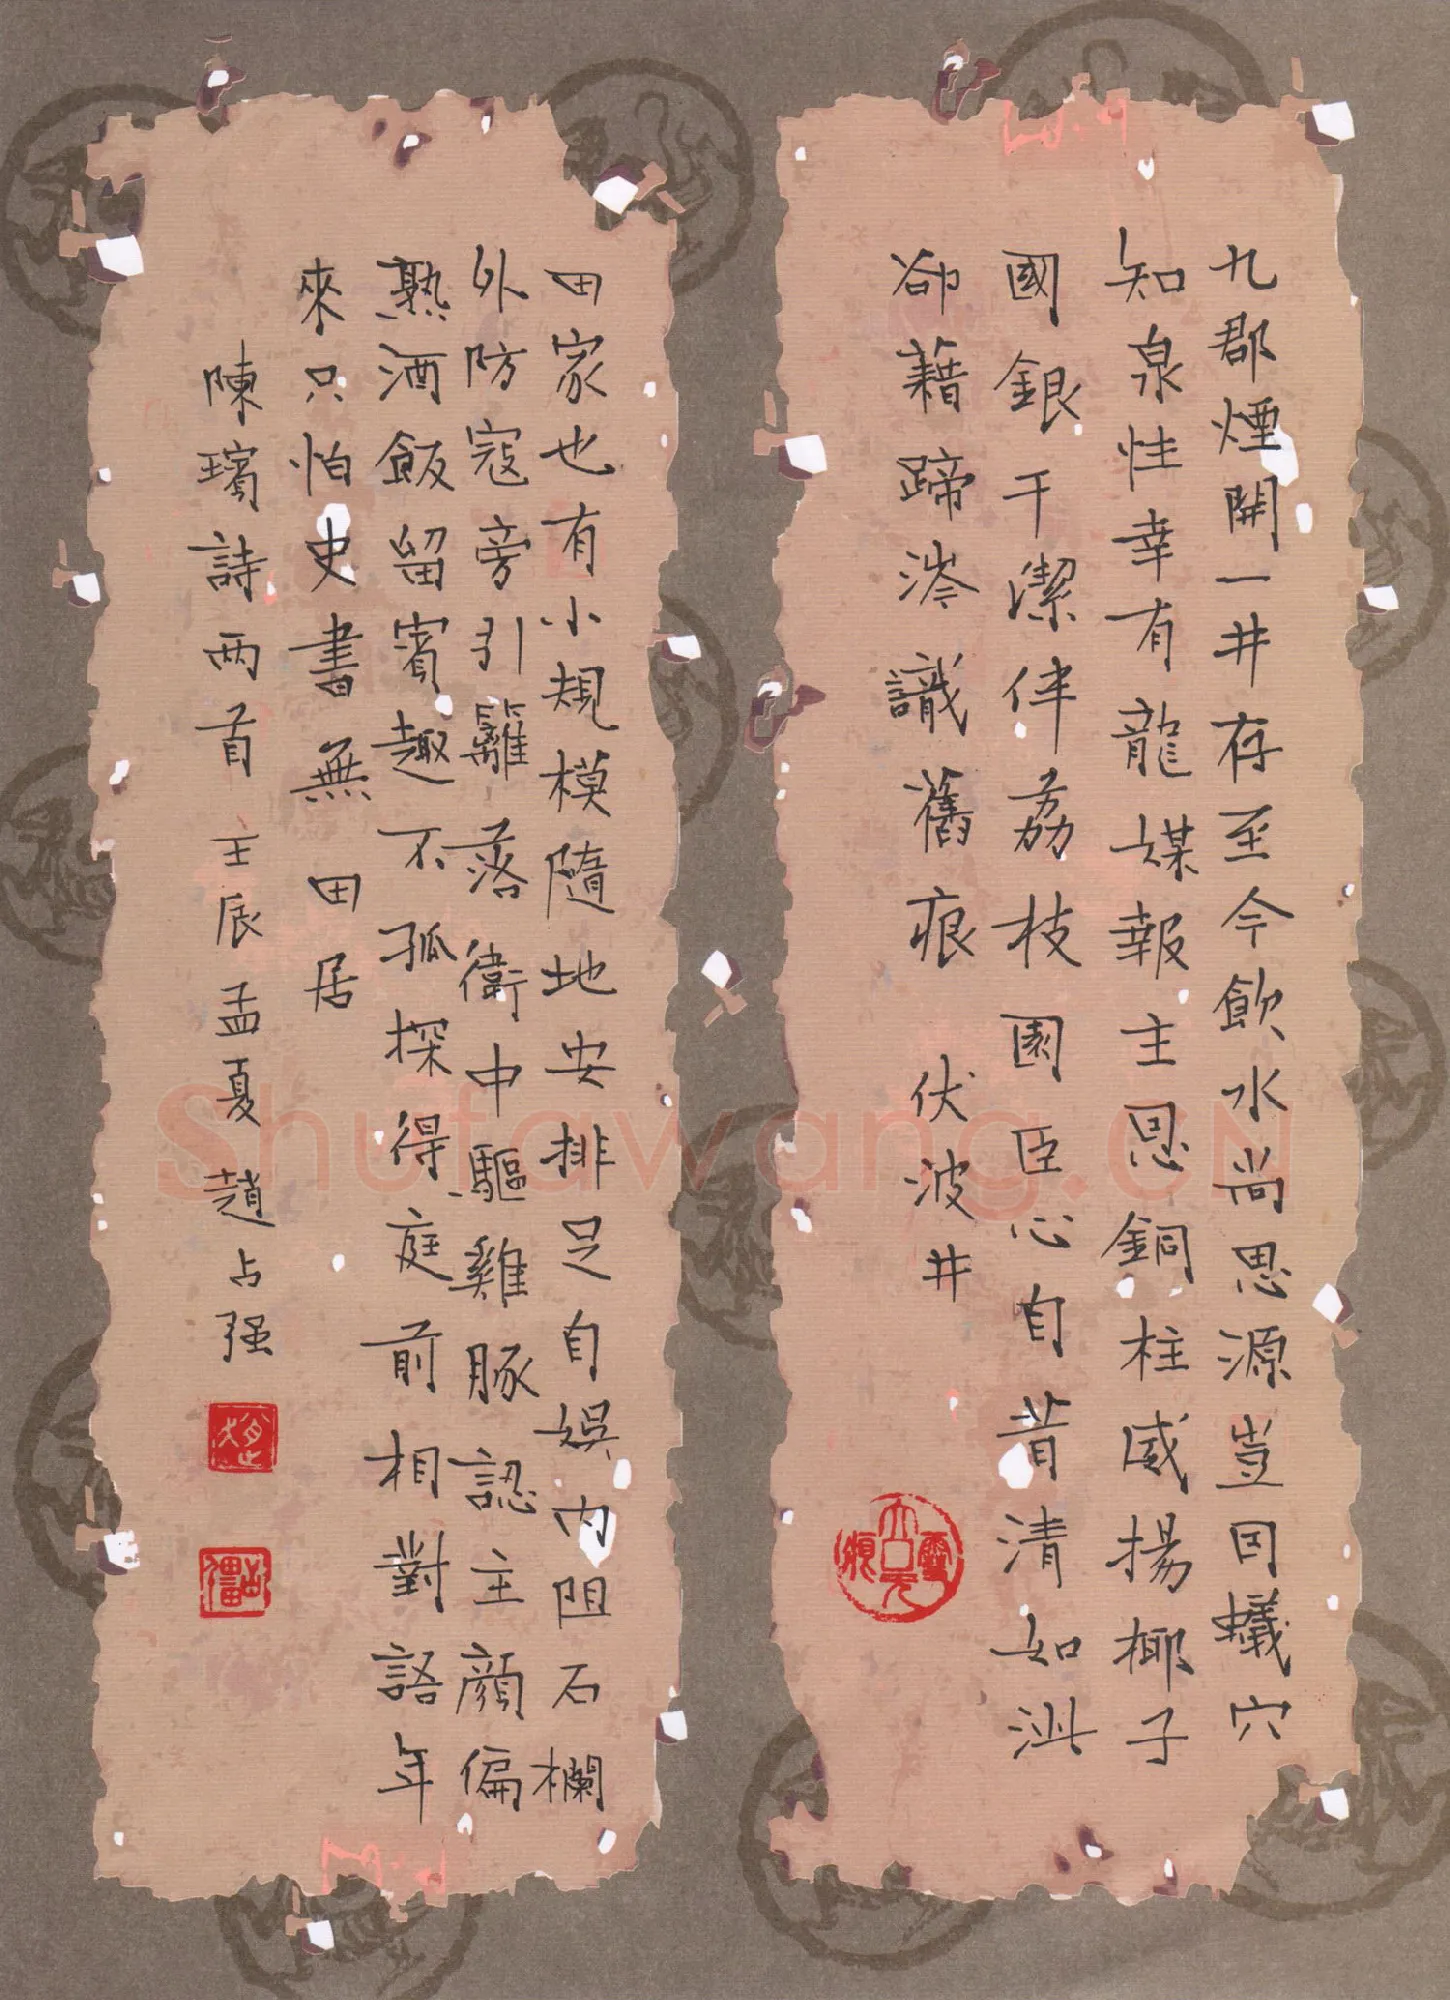 九郡煙開一井存至今飲水尚思源豈因蟻穴
知泉性幸有龍媒報主恩銅柱威揚椰子
國銀干潔伴荔枝園臣心自昔清如泚
卻藉蹄涔識舊痕 伏波井
田家也有小規模隨地安排足自娛內阻石欄
外防寇旁引籬落衛中驅雞豚認主顏偏
熟酒飯留賓趣不孤探得庭前相對語年
來只怕史書無 田居
陳璸詩兩首 壬辰孟夏 趙占强
Shufawang.CN